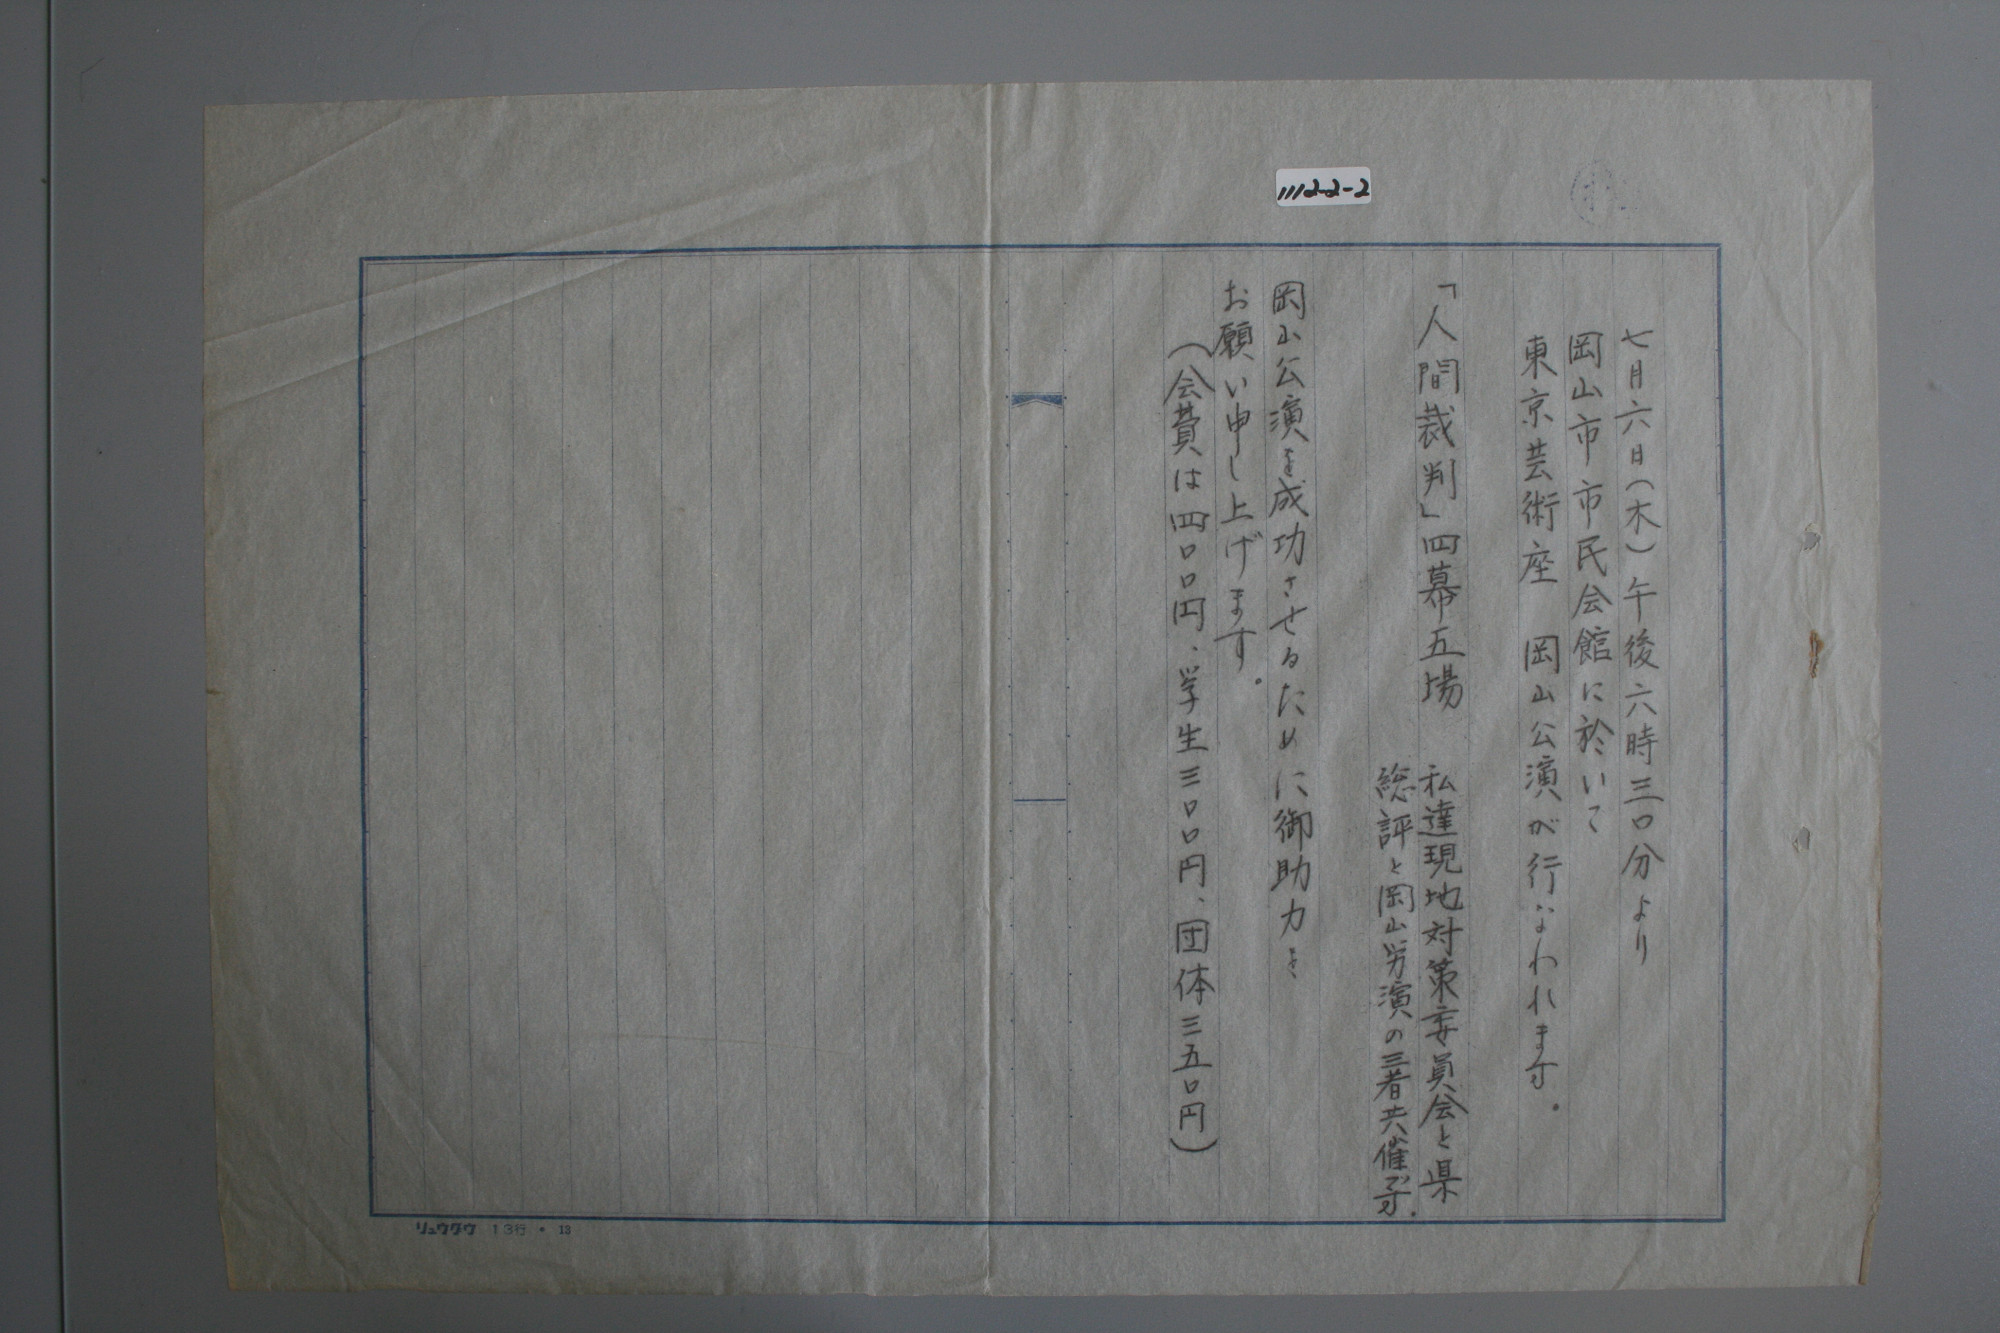 11122-2
七月六日(木)午後六時三〇分より
岡山市市民会館に於いて
東京芸術座 岡山公演が行なわれます。
「人間裁判」四幕五場 私達現地対策委員会と県
総評と岡山労演の三者共催です。
岡山公演を成功させるために御助力を
お願い申し上げます。
(会費は四〇〇円、学生三〇〇円、団体三五〇円)
リュウグウ 13行・13